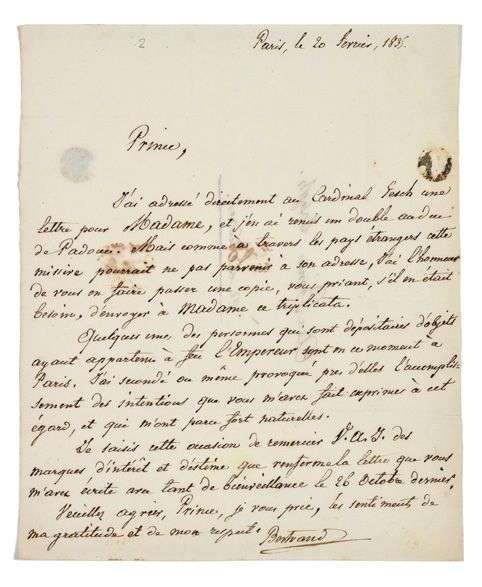 2
Paris, le 20 fevrier, 183
Prince,
J'ai adressé directement au Cardinal Fesch une
lettre pour Madame, et j'en ai remis un double au duc
de Padoue. Mais comme a travers les pays étrangers cette
missive pourrait ne pas parvenir à son adresse, J'ai l'honneur
de vous en faire passer une copie, vous priant, s'il en était
besoin, d'envoyer à Madame ce triplicata.
Quelques unes des personnes qui sont dépositaires d'objets
ayant appartenu a feu l'Empereur sont en ce moment à
Paris. J'ai secondé ou même provoqué pres d'elles l'accomplis-
sement des intentions que vous m'avez fait exprimer à cet
égard, et qui m'ont paru fort naturelles.
Je saisis cette occasion de remercier V.A.I. des
marques d'intérêt et d'estime que renferme la lettre que vous
m'avez écrite avec tant de bienveillance le 26 Octobre dernier.
Veuillez agréer, Prince, je vous prie, les sentiments de
ma gratitude et de mon respect. Bertrand